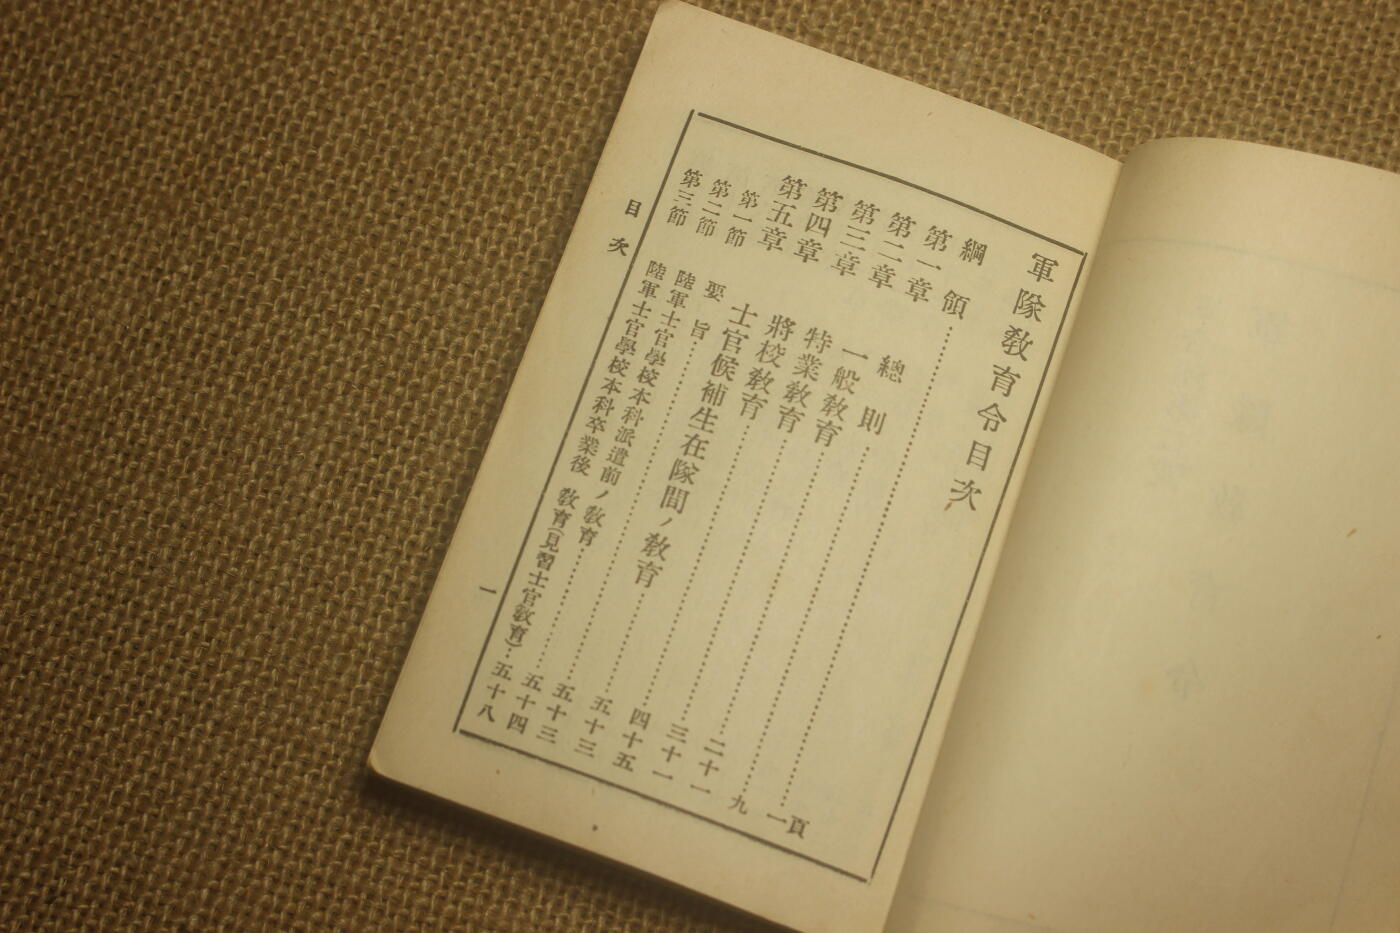 軍隊教育令目次
頁
綱領……一
第一章 總則……九
第二章 一般教育……二十一
第三章 特業教育……三十一
第四章 將校教育……四十五
第五章 士官候補生在隊間ノ教育……五十三
第一節 要旨……五十三
第二節 陸軍士官學校本科派遣前ノ教育……五十四
第三節 陸軍士官學校本科卒業後ノ教育(見習士官教育)…五十八
目次
一